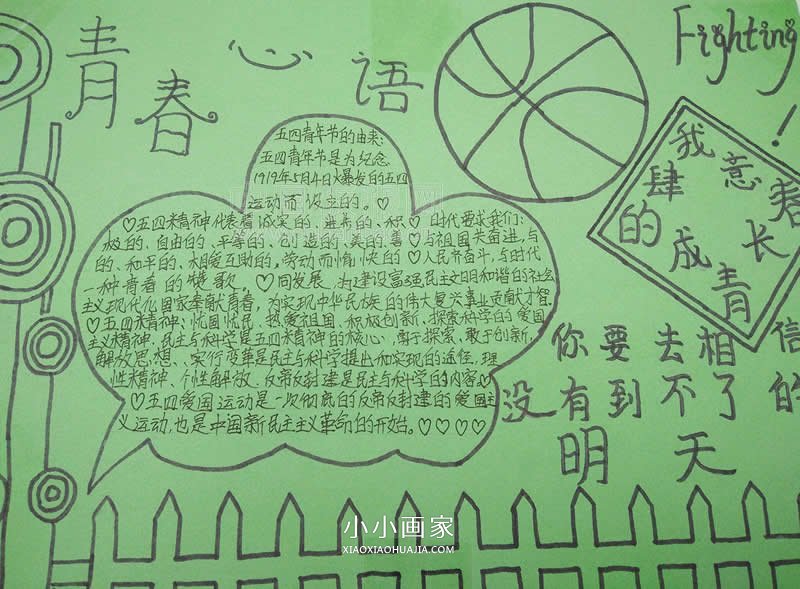 青春心语
Fighting!
五四青年节的由来:
五四青年节是为纪念
1919年5月4日爆发的五四
运动而设立的。♡
♡五四精神代表着诚实的、进步的、积 ♡时代要求我们:
极的、自由的、平等的、创造的、美的、善 ♡与祖国共奋进,与
的、和平的、相爱互助的、劳动而愉快的 ♡人民齐奋斗,与时代
一种青春的赞歌。♡同发展,为建设富强民主文明和谐的社会
主义现代化国家奉献青春,为实现中华民族的伟大复兴事业贡献才智。
♡五四精神:忧国忧民、热爱祖国、积极创新、探索科学的爱国
主义精神。民主与科学是五四精神的核心,勇于探索、敢于创新、
解放思想、实行变革是民主与科学提出和实现的途径,理
性精神、个性解放、反帝反封建是民主与科学的内容♡
♡五四爱国运动是一次彻底的反帝反封建的爱国主
义运动,也是中国新民主主义革命的开始。♡♡♡♡
我
肆意春
的成长
青
你要去相信
没有到不了的
明天
小小画家
XIAOXIAOHUAJIA.COM